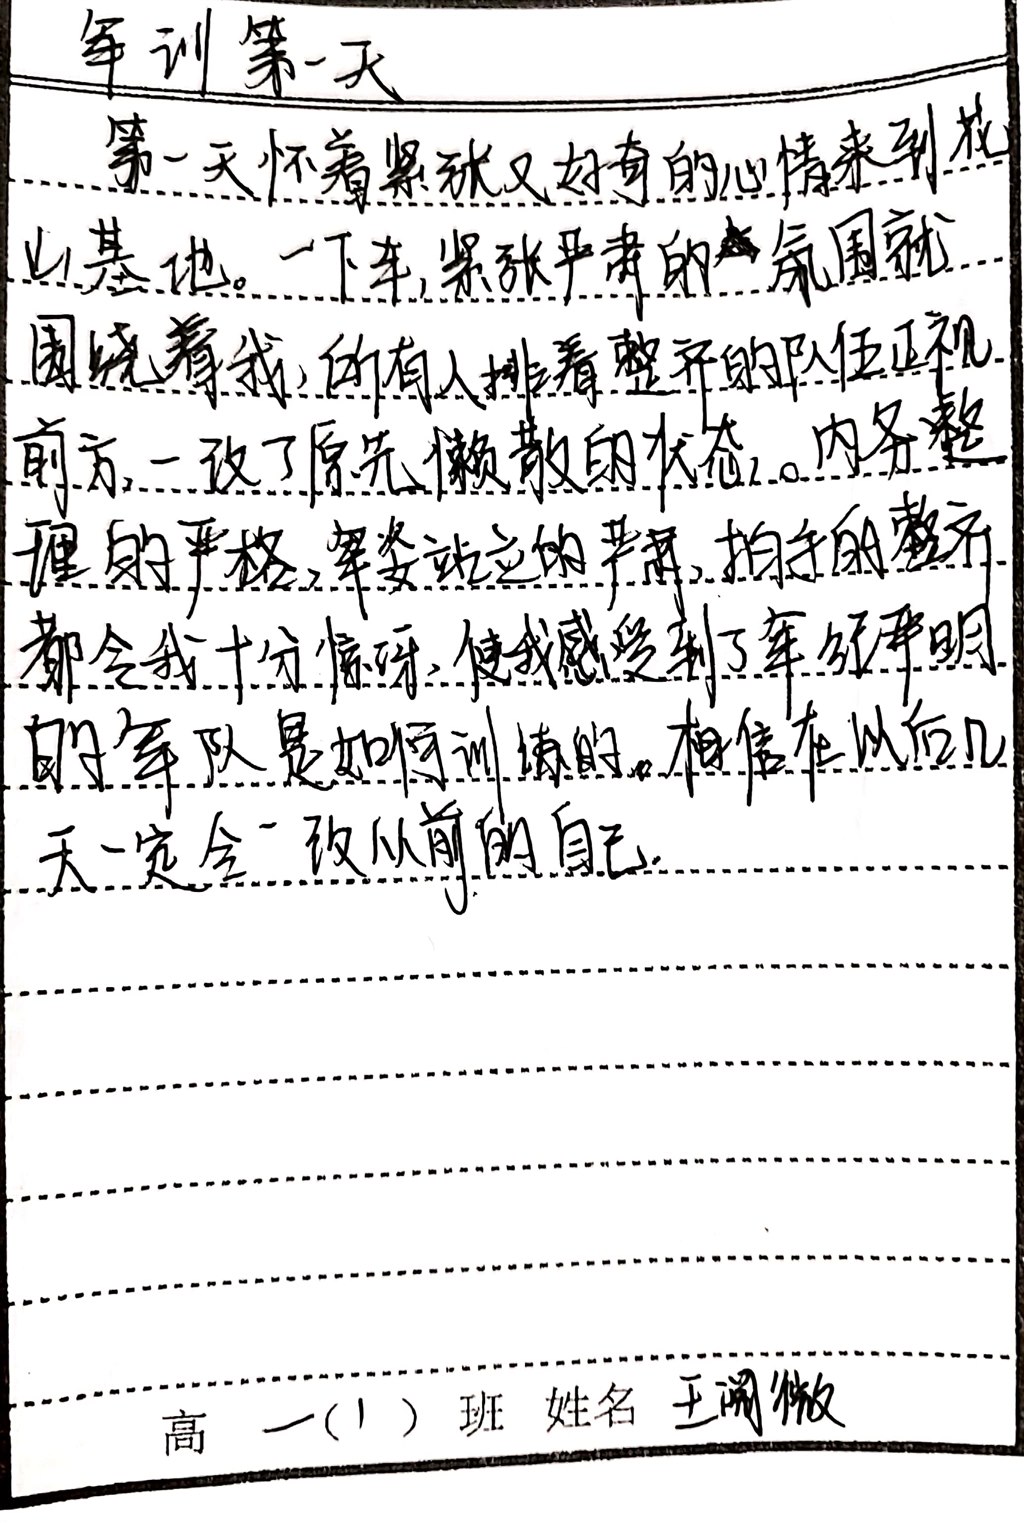 军训第一天
第一天怀着紧张又好奇的心情来到花
山基地。一下车，紧张严肃的氛围就
围绕着我，所有人排着整齐的队伍正视
前方，一改了原先懒散的状态，。内务整
理的严格，军姿站立的严肃，拍手的整齐
都令我十分惊讶，使我感受到了军纪严明
的军队是如何训练的。相信在以后几
天一定会一改从前的自己.
高 一（1）班 姓名 王闻微